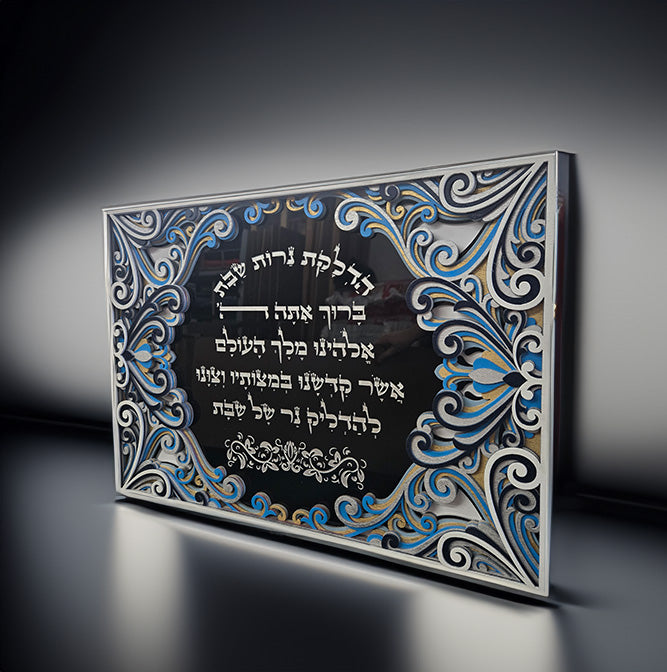 הַדְלָקַת נֵרוֹת שַׁבָּת
בָּרוּךְ אַתָּה ה'
אֱלֹהֵינוּ מֶלֶךְ הָעוֹלָם
אֲשֶׁר קִדְּשָׁנוּ בְּמִצְוֹתָיו וְצִוָּנוּ
לְהַדְלִיק נֵר שֶׁל שַׁבָּת